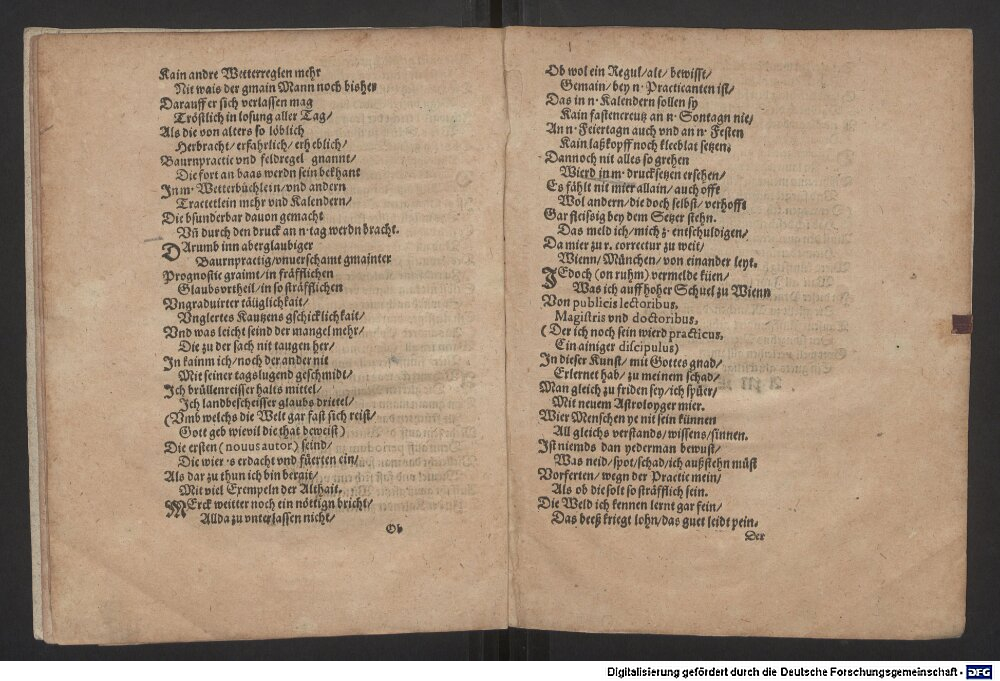 Kain andre Wetterreglen mehr
Nit wais der gmain Mann noch bisher
Darauff er sich verlassen mag
Tröstlich in losung aller Tag/
Als die von alters so löblich
Herbracht/ erfahrlich/ erheblich/
Baurnpractic vnd feldregel gnannt/
Die fort an baas werdn sein bekhant
In m. Wetterbüchlein/ vnd andern
Tractetlein mehr vnd Kalendern/
Die bsunderbar dauon gemacht
Vñ durch den druck an n. tag werdn bracht.
DArumb inn aberglaubiger
Baurnpractig/ vnuerschamt gmainter
Prognostic graimt/ in fräfflichen
Glaubsvrtheil/ in so sträfflichen
Vngraduirter täuglichkait/
Vnglertes Kautzens gschicklichkait/
Vnd was leicht seind der mangel mehr/
Die zu der sach nit taugen her/
In kainm ich/ noch der ander nit
Mit seiner tagslugend geschmidt/
Ich brüllenreisser halts mittel/
Ich landbescheisser glaubs drittel/
(Vmb welchs die Welt gar fast sich reist/
Gott geb wievil die that beweist)
Die ersten (nouus autor) seind/
Die wier .s erdacht vnd füerten ein/
Als dar zu thun ich bin berait/
Mit viel Exempeln der Althait.
MErck weitter noch ein nöttign bricht/
Allda zu vnterlassen nicht/
Ob
Ob wol ein Regul/ alt/ bewisst/
Gemain/ bey n. Practicanten ist/
Das in n. Kalendern sollen sy
Kain fastencreutz an n. Sontagn nie/
An n. Feiertagn auch vnd an n. Festen
Kain laßkopff noch kleeblat setzen.
Dannoch nit alles so grehen
Wierd in m. druck setzen ersehen/
Es fählt nit mier allain/ auch offt
Wol andern/ die doch selbst/ verhofft
Gar fleissig bey dem Setzer stehn.
Das meld ich/ mich z. entschuldigen/
Da mier zu r. correctur zu weit/
Wienn/ München/ von einander leyt.
JEdoch (on ruhm) vermelde küen/
Was ich auff hoher Schuel zu Wienn
Von publicis lectoribus,
Magistris vnd doctoribus,
(Der ich noch sein wierd practicus,
Ein ainiger discipulus)
In dieser Kunst/ mit Gottes gnad/
Erlernet hab/ zu meinem schad/
Man gleich zu friden sey/ ich spüer/
Mit neuem Astroloyger mier.
Wier Menschen ye nit sein künnen
All gleichs verstands/ wissens/ sinnen.
Ist niemds dan yederman bewust/
Was neid/ spot/ schad/ ich außstehn müst
Vorferten/ wegn der Practic mein/
Als ob die solt so sträfflich sein.
Die Weld ich kennen lernt gar fein/
Das beeß kriegt lohn/ das guet leidt pein.
Der
Digitalisierung gefördert durch die Deutsche Forschungsgemeinschaft - DFG